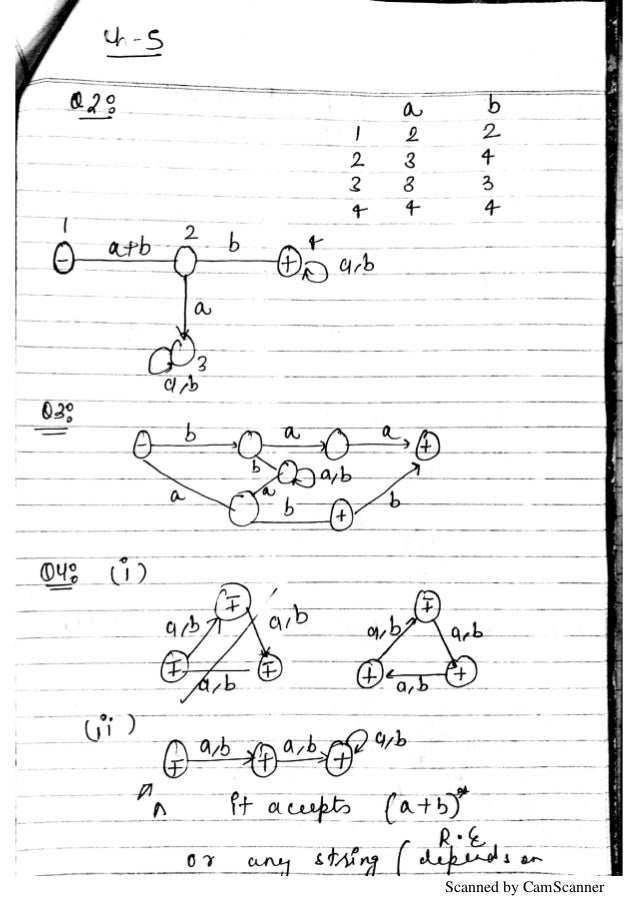 Ch-5
Q2:
a b
1 2 2
2 3 4
3 3 3
4 4 4
1 2 4
- a+b b + a,b
a
3
a,b
Q3:
- b a a +
b a,b
a a b + b
Q4: (i)
∓ ∓
a,b a,b a,b a,b
∓ ∓ + +
a,b a,b
(ii)
∓ a,b + a,b + a,b
it accepts (a+b)*
R.E
or any string (depends on
Scanned by CamScanner